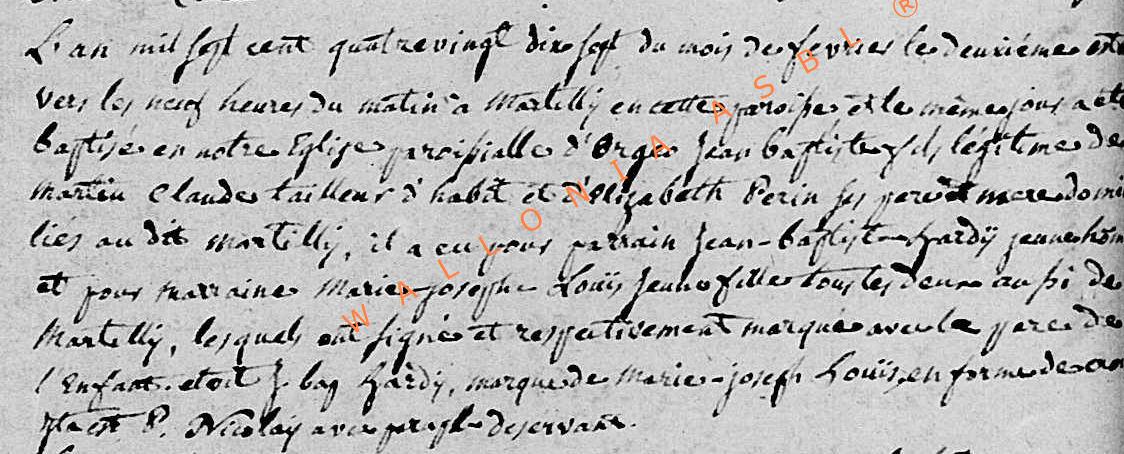 L'an mil sept cent quatrevingt dix sept du mois de fevrier le deuxiéme est né
vers les neuf heures du matin a Martilly en cette paroisse, et le même jour a eté
baptisé en notre Eglise paroissialle d'Orgeo Jean baptiste fils légitime de
martin Claude tailleur d'habit et d'Elizabeth Perin ses pere et mere domi
liés au dit Martilly, il a eu pour parrain Jean-baptiste hardÿ jeune hom
et pour marraine Marie-josephe Louïs Jeune fille tous les deux aussi de
Martilly, lesquels ont signé et respectivement marqué avec le pere de
l'Enfant. etoit J. bap hardÿ, marque de Marie-joseph Louïs, en forme de
P. Nicolaÿ avec desservant.
WALLONIA ASBL ®